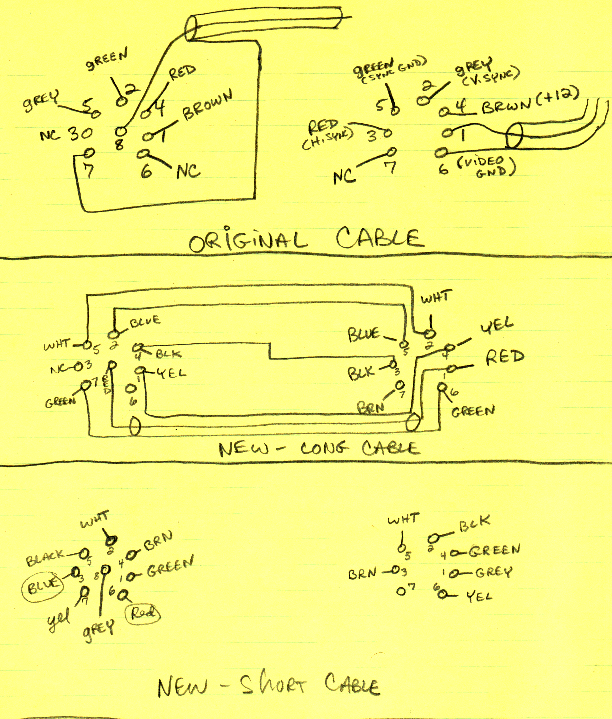 GREEN
2
RED
GREY
5
4
BROWN
NC 3
8
1
7
6
NC
GREEN
(SYNC GND)
GREY
(V.SYNC)
2
5
4 BRWN (+12)
RED
(H.SYNC)
3
1
NC
7
6
(VIDEO
GND)
ORIGINAL CABLE
BLUE
WHT
5
2
4
BLK
NC
3
8
RED
1
YEL
GREEN
7
6
WHT
BLUE
5
2
YEL
4
BLK
3
RED
1
7
BRN
6
GREEN
NEW - LONG CABLE
WHT
2
BLACK
5
4
BRN
BLUE
3
8
1
GREEN
yel
7
6
Red
gREY
WHT
5
2
BLK
4
GREEN
BRN
3
1
GREY
7
6
YEL
NEW - SHORT CABLE